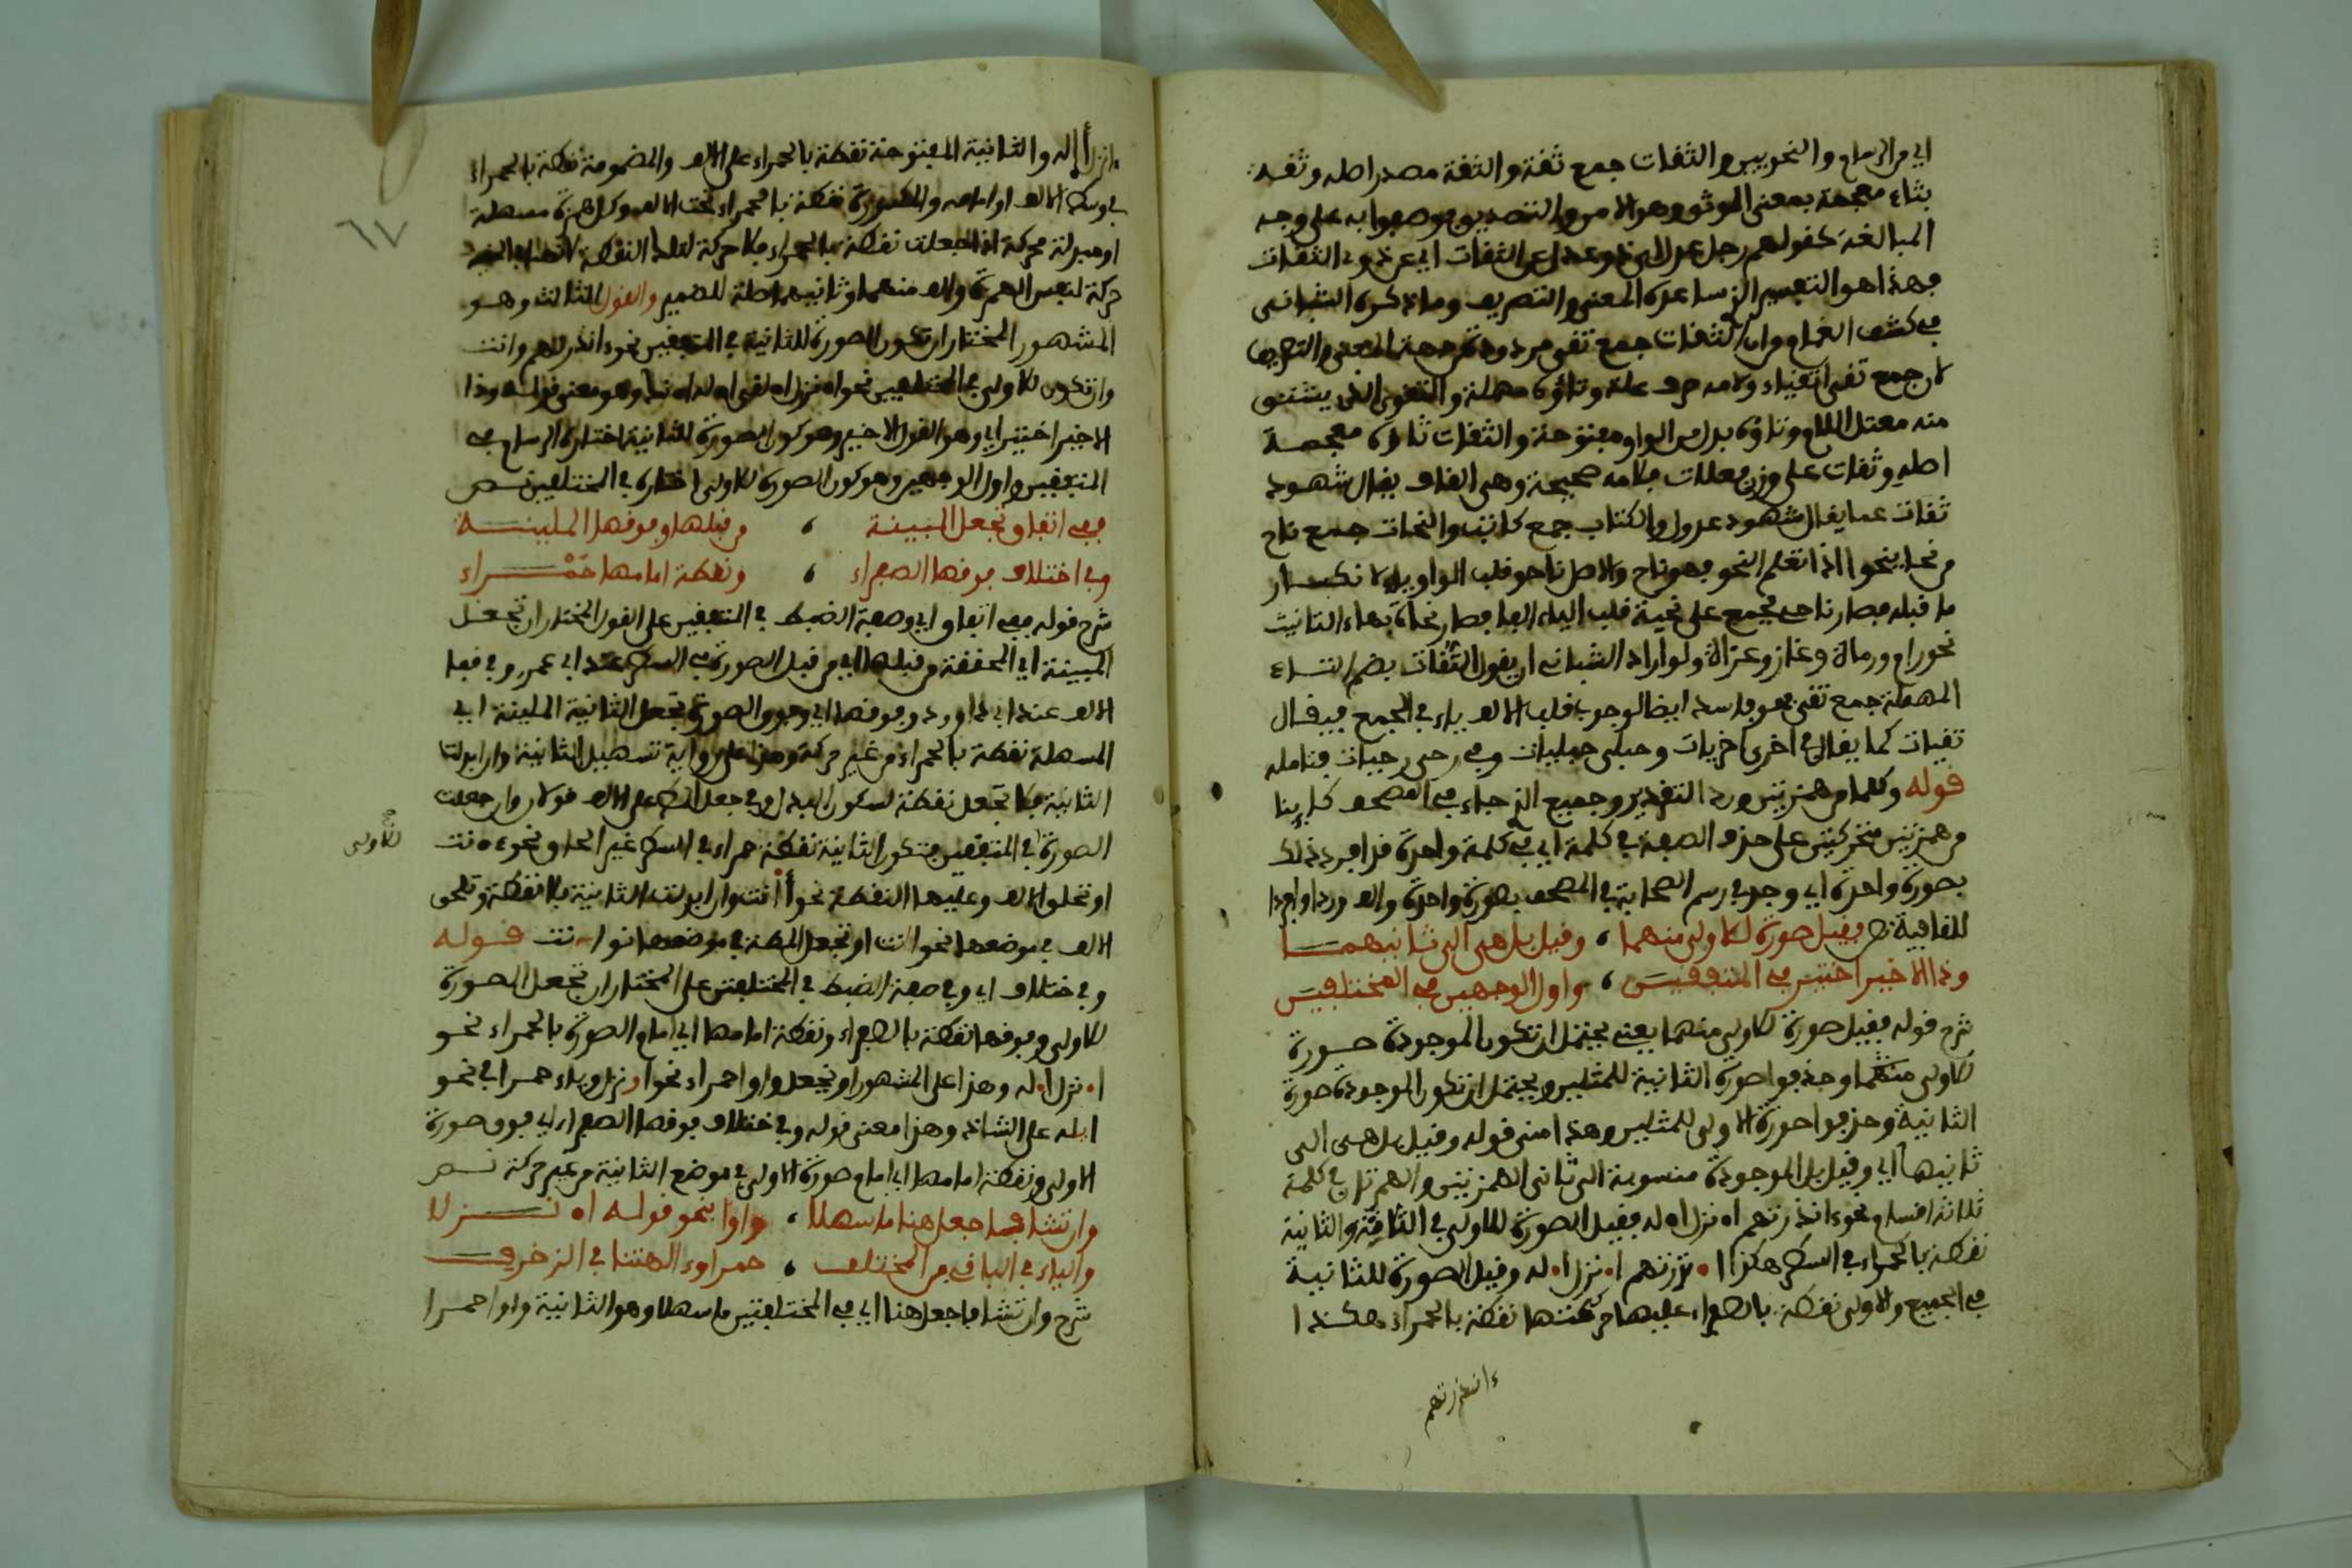 اي من الرسام والنحويين والثقات جمع ثقة والثقة مصدر اصله وثقه
بثاء معجمة بمعنى الموثوق وهو الامن والتصديق يوصفوا به على وجه
المبالغة كقولهم رجل عدل اي عن الثقات
فهذا هو التفسير الذي ساعده المعنى والتصريف وما ذكره الشباني
في كشف الغمام من ان الثقات جمع تقي مردود من جهة المعنى والتصريف
لان جمع تقي اتقياء ولامه حرف علة وتاؤه مهملة والتقوى الذي يشتق
منه معتل اللام وتاؤه بدل من الواو مفتوحة والثقات ثاؤه معجمة
اصله وثقات على وزن فعلات فلامه صحيحة وهي القاف يقال شهود
ثقات كما يقال شهود عدول والكتاب جمع كاتب والنحات جمع ناح
من نحا ينحوا اذا تعلم النحو فهو ناح والاصل ناحو قلب الواو ياء لانكسار
ما قبله فصار ناحي فجمع على نحية قلب الياء الفا فصار نحاة بهاء التانيث
نحو رام ورماة وغاز وغزاة ولو اراد الشباني ان يقول التقات بضم التاء
المهملة جمع تقى فهو فاسد ايضا لوجوب قلب الالف ياء في الجمع فيقال
تقيات كما يقال في اخرى اخريات وحبلى حبليات وفي رحى رحيات فتامله
قوله وكلما من همزتين وردا التقدير وجميع الذي جاء في المصحف كاينا
من همزتين متحركتين على حذف الصفة في كلمة اي في كلمة واحدة قد افرد ذلك
بصورة واحدة اي وجد في رسم الصحابة في المصحف بصورة واحدة والف وردا وافردا
للقافية ص فقيل صورة للاولى منهما ، وقيل بل هي الى ثانيهما
وذا الاخير اختير في المتفقين ، واول الوجهين في المختلفين
شرح قوله فقيل صورة للاولى منهما يعني يحتمل ان تكون الموجودة صورة
للاولى منهما وحذفوا صورة الثانية للمثلين ويحتمل ان تكون الموجودة صورة
الثانية وحذفوا صورة الاولى للمثلين وهذا معنى قوله وقيل بل هي الى
ثانيهما اي وقيل بل الموجودة منسوبة الى ثاني الهمزتين والهمزتان في كلمة
ثلاثة اقسام نحو ءانذرتهم اءنزل اءله فقيل الصورة للاولى في الثلاثة والثانية
نقطة بالحمراء في السطر هكذا ا نذرتهم ا نزل ا له وقيل الصورة للثانية
في الجميع والاولى نقطة بالصفراء عليها حركتها نقطة بالحمراء هكذا
ءانذرتهم
٦٧
ءانزل أاله والثانية المفتوحة نقطة بالحمراء على الالف والمضمومة نقطة بالحمراء
في وسط الالف او امامه والمكسورة نقطة بالحمراء تحت الالف وكل همزة مسهلة
او مبدلة محركة اذا جعلت نقطة بالحمراء فلا حركة لتلك النقطة
حركة لنفس الهمزة والف منهما وثانيهما صلة للضمير والقول الثالث وهو
المشهور المختار ان تكون الصورة للثانية في المتفقين نحو ءانذرتهم وانت
وان تكون للاولى في المختلفين نحو اءنزل اءلقى اءله وهو معنى قوله وذا
الاخير اختير اي وهو القول الاخير وهو كون الصورة للثانية اختاره الرسام في
المتفقين واول الوجهين وهو كون الصورة للاولى اختاره في المختلفين ص
ففي اتفاق تجعل المبينة ، من قبلها وفوقها الملينة
وفي اختلاف فوقها الصفراء ، ونقطة امامها حمراء
شرح قوله ففي اتفاق اي وصفة الضبط في المتفقين على القول المختار ان تجعل
المبينة اي المحققة من قبلها اي من قبل الصورة في السطر عند ابي عمرو وفي قفا
الالف عند ابي داوود وفوقها اي وفوق الصورة تجعل الثانية الملينة اي
المسهلة نقطة بالحمراء من غير حركة وهذا على رواية تسهيل الثانية وان ابدلتا
الثانية فلا تجعل نقطة لسكون المبدل وفي جعل المط على الالف قولان وان جعلت
الصورة في المتفقين فتكون الثانية نقطة حمراء في السطر غير الحاق نحو ءانت
للاولى صح
او تحلق الالف وعليها النقطة نحو أانت وان ابدلت الثانية بلا نقطة وتلحق
الالف في موضعها نحو اانت او تجعل المطة في موضعها نحو ا~نت قوله
وفي ختلاف اي وفي صفة الضبط في المختلفين على المختار ان تجعل الصورة
للاولى وفوقها نقطة بالصفراء ونقطة امامها اي امام الصورة بالحمراء نحو
ا نزل ا له وهذا على المشهور او تجعل واوا حمراء نحو اونزل وياء حمرا في نحو
ايله على الشاذ وهذا معنى قوله وفي ختلاف فوقها الصفراء اي فوق صورة
الاولى ونقطة امامها اي امام صورة الاولى في موضع الثانية من غير حركة ص
وان تشا فاجعل هنا ما سهلا ، واوا بنحو قوله اءنزلا
والياء في الباقي من المختلف ، حمرا وءالهتنا في الزخرف
شرح وان تشا فاجعل هنا اي في المختلفتين ما سهلا وهو الثانية واوا حمرا